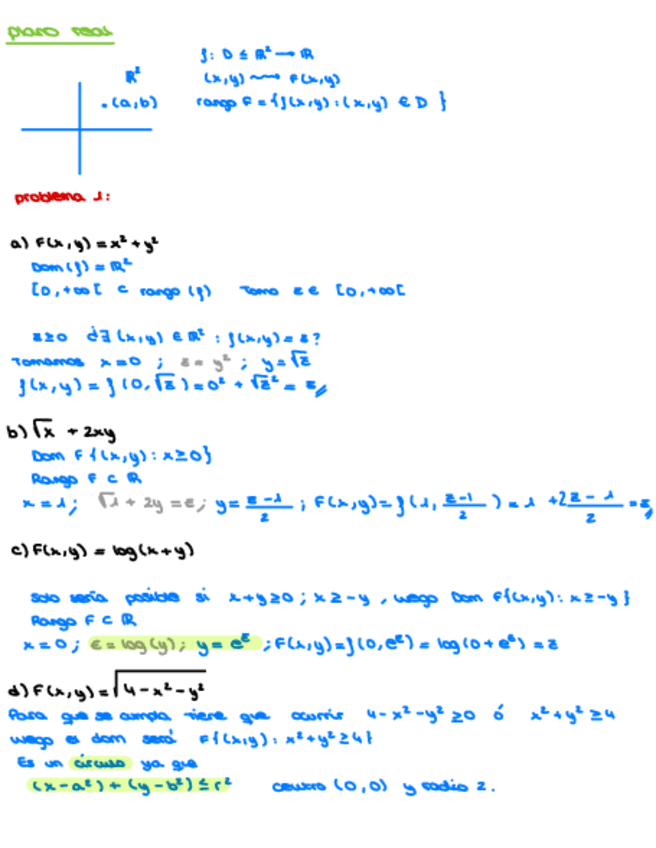 plano real
f: D ≤ ℝ² → ℝ
ℝ²
(x,y) ⇝ F(x,y)
.(a,b)
rango F = {f(x,y) : (x,y) ∈ D }
problema 1:
a) F(x,y) = x² + y²
Dom(f) = ℝ²
[0,+∞[ ⊂ rango (f) Tomo z ∈ [0,+∞[
z≥0 ¿∃ (x,y) ∈ ℝ² : f(x,y) = z?
Tomamos x=0 ; z= y² ; y=√z
f(x,y) = f(0,√z) = 0² + √z² = z
b) √x + 2xy
Dom F {(x,y) : x≥0}
Rango F ⊂ ℝ
x = 1; √1 + 2y = z; y = (z-1)/2 ; F(x,y) = f(1, (z-1)/2 ) = 1 + 2(z-1)/2 = z
c) F(x,y) = log(x+y)
solo sería posible si x+y≥0 ; x≥-y , luego Dom F{(x,y): x≥-y}
Rango F ⊂ ℝ
x=0 ; z = log(y); y = e^z ; F(x,y) = f(0,e^z) = log(0+e^z) = z
d) F(x,y) = √(4-x²-y²)
Para que se cumpla tiene que ocurrir 4-x²-y² ≥0 ó x²+y² ≥4
luego el dom será F{(x,y): x²+y²≥4}
Es un círculo ya que
(x-a²) + (y-b²) ≤ r² centro (0,0) y radio 2.